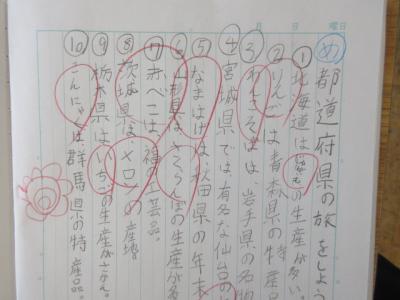 月 日 曜日
め 都道府県の旅をしよ
① 北海道は の生産が多い。
② りんごは青森県の特産
③ わんこそばは、岩手県の名物
④ 宮城県では有名な仙台の
⑤ なまはげは秋田県の年末
⑥ 山形県はさくらんぼの生産が
⑦ 赤べこは、福 芸品。
⑧ 茨城県は、メロンの産
⑨ 栃木県はいちごの生産がさかん。
⑩ こんにゃくは、群馬県の特産品。